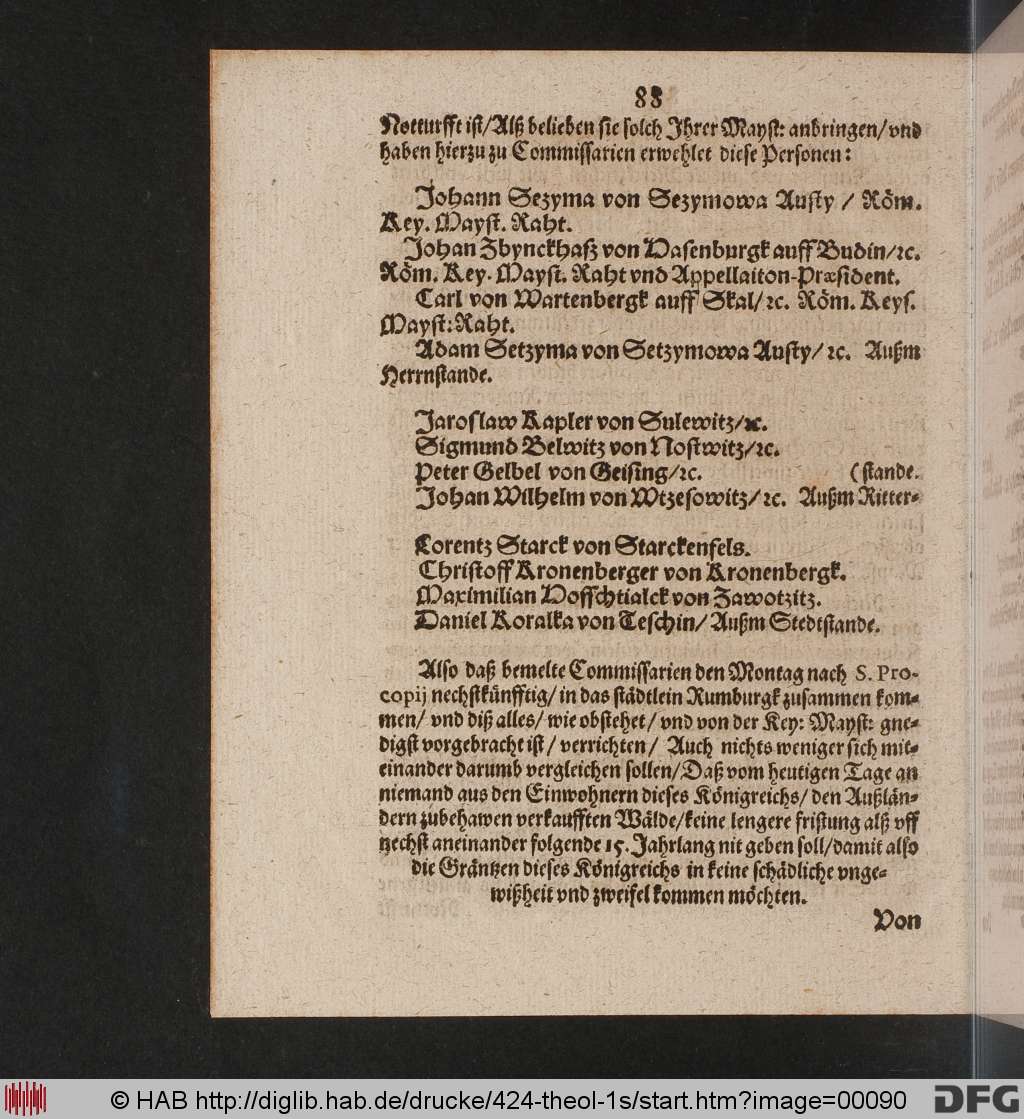 88
Notturfft ist/Alß belieben sie solch Ihrer Mayst: anbringen/vnd
haben hierzu zu Commissarien erwehlet diese Personen:
Johann Sezyma von Sezymowa Austy / Röm.
Key. Mayst. Raht.
Johan Zbynckhaß von Hasenburgk auff Budin/ꝛc.
Röm. Key. Mayst. Raht vnd Appellaiton-Præsident.
Carl von Wartenbergk auff Skal/ꝛc. Röm. Keys.
Mayst: Raht.
Adam Setzyma von Setzymowa Austy/ꝛc. Außm
Herrnstande.
Jaroslaw Kapler von Sulewitz/ꝛc.
Sigmund Belwitz von Nostwitz/ꝛc.
Peter Gelbel von Geising/ꝛc. (stande.
Johan Wilhelm von Wtzesowitz/ꝛc. Außm Ritter-
Lorentz Starck von Starckenfels.
Christoff Kronenberger von Kronenbergk.
Maximilian Hosschtialck von Zawotzitz.
Daniel Koralka von Teschin/ Außm Stedtstande.
Also daß bemelte Commissarien den Montag nach S. Pro-
copij nechstkünfftig/ in das städtlein Rumburgk zusammen kom-
men/ vnd diß alles/ wie obstehet/ vnd von der Key: Mayst: gne-
digst vorgebracht ist/ verrichten/ Auch nichts weniger sich mit-
einander darumb vergleichen sollen/Daß vom heutigen Tage an
niemand aus den Einwohnern dieses Königreichs/ den Außlän-
dern zubehawen verkaufften Wälde/keine lengere fristung alß vff
nechst aneinander folgende 15. Jahrlang nit geben soll/damit also
die Gräntzen dieses Königreichs in keine schädliche vnge-
wißheit vnd zweifel kommen möchten.
Von
© HAB http://diglib.hab.de/drucke/424-theol-1s/start.htm?image=00090
DFG